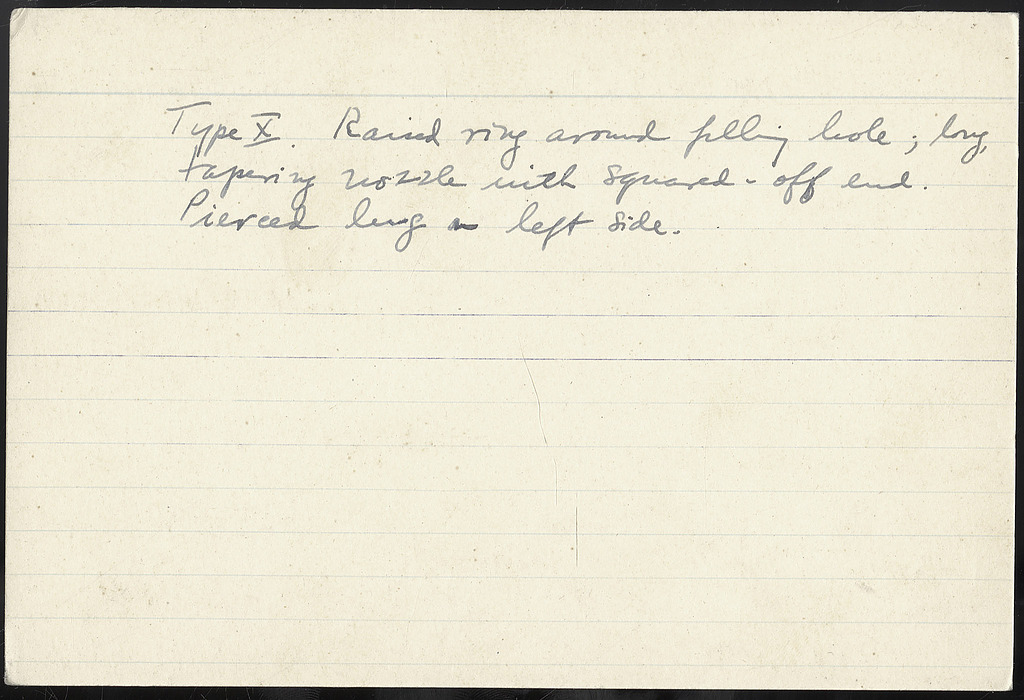 Type X. Raised ring around filling hole; long,
tapering nozzle with squared-off end.
Pierced lug on left side.